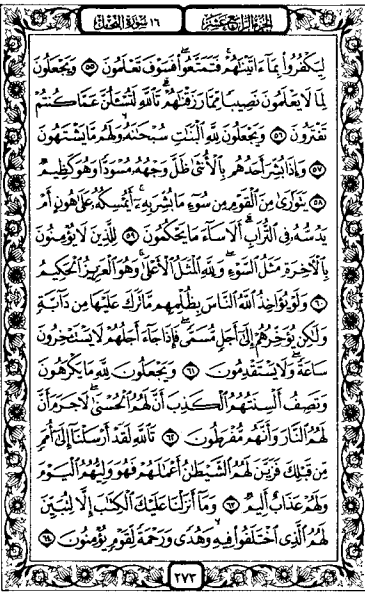 الجزء الرابع عشر ١٦ سورة النحل
لِيَكْفُرُوا۟ بِمَآ ءَاتَيْنَٰهُمْ ۚ فَتَمَتَّعُوا۟ ۖ فَسَوْفَ تَعْلَمُونَ ٥٥ وَيَجْعَلُونَ
لِمَا لَا يَعْلَمُونَ نَصِيبًا مِّمَّا رَزَقْنَٰهُمْ ۗ تَٱللَّهِ لَتُسْـَٔلُنَّ عَمَّا كُنتُمْ
تَفْتَرُونَ ٥٦ وَيَجْعَلُونَ لِلَّهِ ٱلْبَنَٰتِ سُبْحَٰنَهُۥ ۙ وَلَهُم مَّا يَشْتَهُونَ
٥٧ وَإِذَا بُشِّرَ أَحَدُهُم بِٱلْأُنثَىٰ ظَلَّ وَجْهُهُۥ مُسْوَدًّا وَهُوَ كَظِيمٌ
٥٨ يَتَوَٰرَىٰ مِنَ ٱلْقَوْمِ مِن سُوٓءِ مَا بُشِّرَ بِهِۦٓ ۚ أَيُمْسِكُهُۥ عَلَىٰ هُونٍ أَمْ
يَدُسُّهُۥ فِى ٱلتُّرَابِ ۗ أَلَا سَآءَ مَا يَحْكُمُونَ ٥٩ لِلَّذِينَ لَا يُؤْمِنُونَ
بِٱلْءَاخِرَةِ مَثَلُ ٱلسَّوْءِ ۖ وَلِلَّهِ ٱلْمَثَلُ ٱلْأَعْلَىٰ ۚ وَهُوَ ٱلْعَزِيزُ ٱلْحَكِيمُ
٦٠ وَلَوْ يُؤَاخِذُ ٱللَّهُ ٱلنَّاسَ بِظُلْمِهِم مَّا تَرَكَ عَلَيْهَا مِن دَآبَّةٍ
وَلَٰكِن يُؤَخِّرُهُمْ إِلَىٰٓ أَجَلٍ مُّسَمًّى ۖ فَإِذَا جَآءَ أَجَلُهُمْ لَا يَسْتَـْٔخِرُونَ
سَاعَةً ۖ وَلَا يَسْتَقْدِمُونَ ٦١ وَيَجْعَلُونَ لِلَّهِ مَا يَكْرَهُونَ
وَتَصِفُ أَلْسِنَتُهُمُ ٱلْكَذِبَ أَنَّ لَهُمُ ٱلْحُسْنَىٰ ۖ لَا جَرَمَ أَنَّ
لَهُمُ ٱلنَّارَ وَأَنَّهُم مُّفْرَطُونَ ٦٢ تَٱللَّهِ لَقَدْ أَرْسَلْنَآ إِلَىٰٓ أُمَمٍ
مِّن قَبْلِكَ فَزَيَّنَ لَهُمُ ٱلشَّيْطَٰنُ أَعْمَٰلَهُمْ فَهُوَ وَلِيُّهُمُ ٱلْيَوْمَ
وَلَهُمْ عَذَابٌ أَلِيمٌ ٦٣ وَمَآ أَنزَلْنَا عَلَيْكَ ٱلْكِتَٰبَ إِلَّا لِتُبَيِّنَ
لَهُمُ ٱلَّذِى ٱخْتَلَفُوا۟ فِيهِ ۙ وَهُدًى وَرَحْمَةً لِّقَوْمٍ يُؤْمِنُونَ ٦٤
٢٧٣